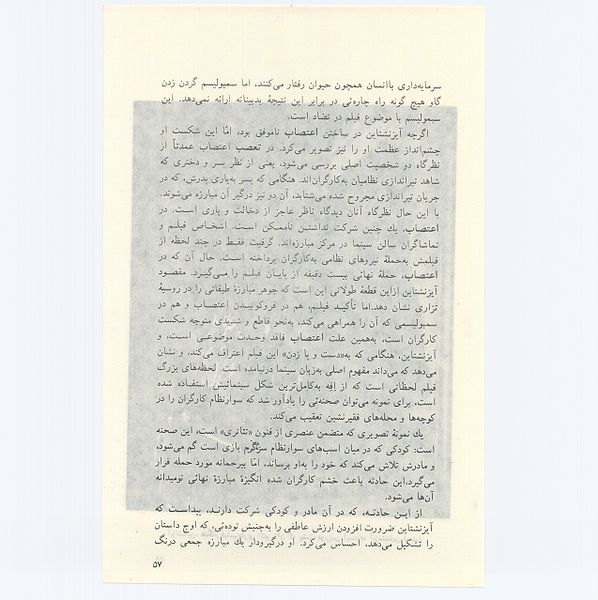 سرمایه‌داری باانسان همچون حیوان رفتار می‌کنند، اما سمبولیسم گردن زدن
گاو هیچ گونه راه چاره‌ئی در برابر این نتیجهٔ بدبینانه ارائه نمی‌دهد. این
سمبولیسم با موضوع فیلم در تضاد است.
اگرچه آیزنشتاین در ساختن اعتصاب ناموفق بود، امّا این شکست او
چشم‌انداز عظمت او را نیز تصویر می‌کرد. در تعصب اعتصاب عمدتاً از
نظرگاه دو شخصیت اصلی بررسی می‌شود، یعنی از نظر پسر و دختری که
شاهد تیراندازی نظامیان به‌کارگران‌اند. هنگامی که پسر به‌یاری پدرش، که در
جریان تیراندازی مجروح شده می‌شتابد، آن دو نیز درگیر آن مبارزه می‌شوند.
با این حال نظرگاه آنان دیدگاه ناظر عاجز از دخالت و یاری است. در
اعتصاب، یك چنین شرکت نداشتن ناممکن است. اشخاص فیلم و
تماشاگران سالن سینما در مرکز مبارزه‌اند. گرفیث فقط در چند لحظه از
فیلمش به‌حملهٔ نیروهای نظامی به‌کارگران پرداخته است. حال آن که در
اعتصاب، حملهٔ نهائی بیست دقیقه از پایان فیلم را می‌گیرد. مقصود
آیزنشتاین ازاین قطعهٔ طولانی این است که جوهر مبارزهٔ طبقاتی را در روسیهٔ
تزاری نشان دهد.اما تأکید فیلم، هم در فروکوبیدن اعتصاب و هم در
سمبولیسمی که آن را همراهی می‌کند، به‌نحو قاطع و شدیدی متوجه شکست
کارگران است، به‌همین علت اعتصاب فاقد وحدت موضوعی است، و
آیزنشتاین، هنگامی که به‌«دست و پا زدن» این فیلم اعتراف می‌کند، و نشان
می‌دهد که می‌داند مفهوم اصلی به‌زبان سینما درنیامده است. لحظه‌های بزرگ
فیلم لحظاتی است که از ایّه به‌کامل‌ترین شکل سینمائیش استفاده شده
است، برای نمونه می‌توان صحنه‌ئی را یادآور شد که سوارنظام کارگران را در
کوچه‌ها و محله‌های فقیرنشین تعقیب می‌کند.
یك نمونهٔ تصویری که متضمن عنصری از فنون «تئاتری» است، این صحنه
است: کودکی که در میان اسب‌های سوارنظام سرگرم بازی است گم می‌شود،
و مادرش تلاش می‌کند که خود را به‌او برساند، امّا بیرحمانه مورد حمله قرار
می‌گیرد.این حادثه باعث خشم کارگران شده انگیزهٔ مبارزهٔ نهائی نومیدانه
آن‌ها می‌شود.
از این حادثه، که در آن مادر و کودکی شرکت دارند، پیداست که
آیزنشتاین ضرورت افزودن ارزش عاطفی را به‌جنبش توده‌ئی، که اوج داستان
را تشکیل می‌دهد، احساس می‌کرد. او درگیرودار یك مبارزه جمعی درنگ
۵۷